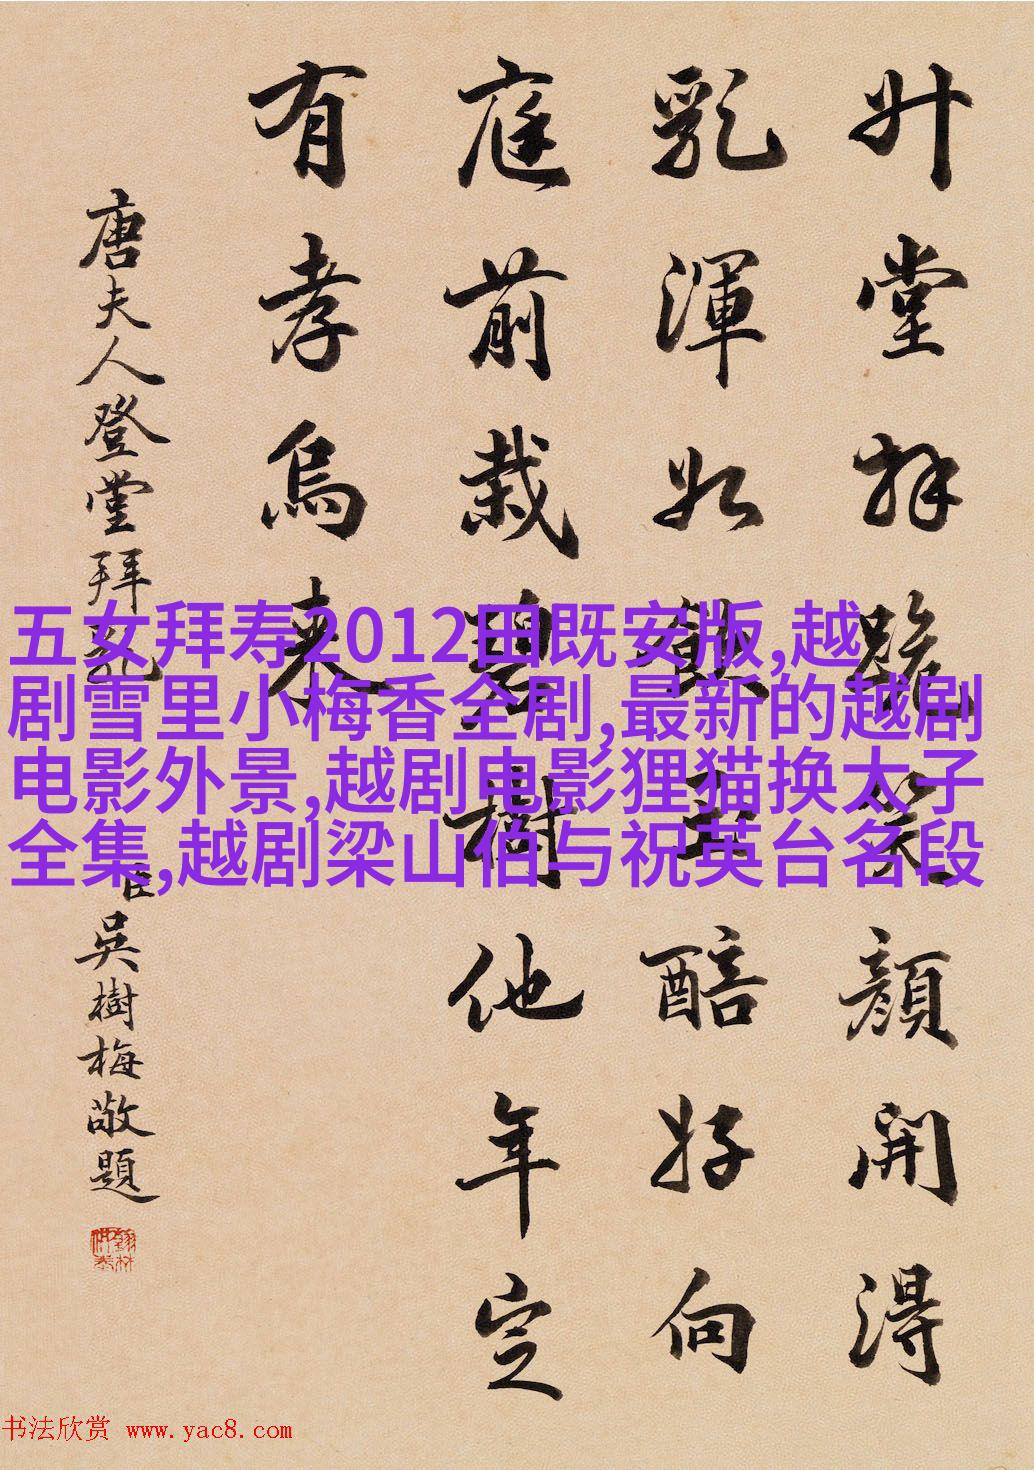 升堂拜跪笑顏開得
乳渾如飲玉醅好向
庭前栽碧樹他年定
有孝烏來
唐夫人登堂拜乳
臣吳樹梅敬題
五女拜寿2012田既安版,越
剧雪里小梅香全剧,最新的越剧
电影外景,越剧电影狸猫换太子
全集,越剧梁山伯与祝英台名段
书法欣赏 www.yac8.com